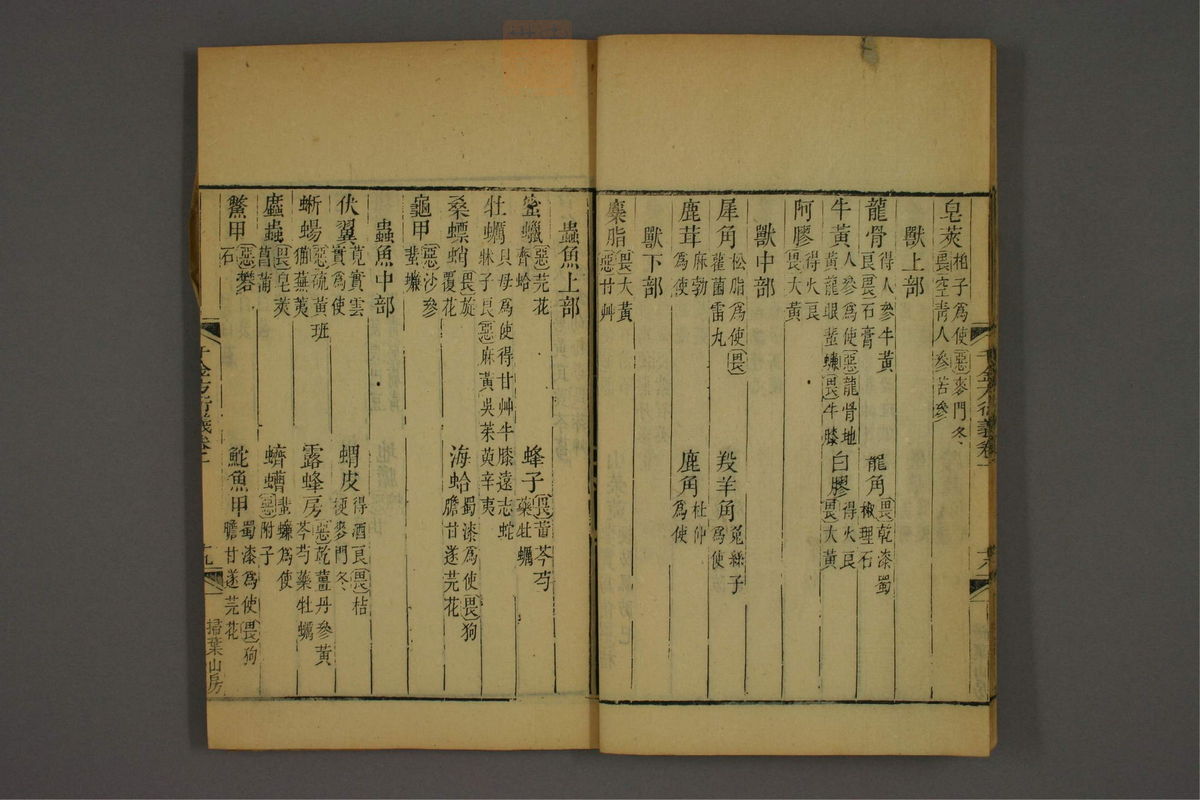 皂莢 柏子爲使惡麥門冬畏空青人參苦參
獸上部
龍骨 得人參牛黃良畏石膏 龍角 畏乾漆蜀椒理石
牛黃 人參爲使惡龍骨地黃龍眼蜚蠊畏牛膝 白膠 得火良畏大黃
阿膠 得火良畏大黃
獸中部
犀角 松脂爲使畏雚菌雷丸 羖羊角 菟絲子爲使
鹿茸 麻勃爲使 鹿角 杜仲爲使
獸下部
麋脂 畏大黃惡甘艸
蟲魚上部
蜜蠟 惡芫花齊蛤 蜂子 畏黃芩芍藥牡蠣
牡蠣 貝母爲使得甘艸牛膝遠志蛇牀子良惡麻黃吳茱萸辛夷
桑螵蛸 畏旋覆花 海蛤 蜀漆爲使畏狗膽甘遂芫花
龜甲 惡沙參蜚蠊
蟲魚中部
伏翼 莧實雲實爲使 蝟皮 得酒良畏桔梗麥門冬
蜥蜴 惡硫黃班猫蕪荑 露蜂房 惡乾薑丹參黃芩芍藥牡蠣
䗪蟲 畏皂莢菖蒲 蠐螬 蜚蠊爲使惡附子
鱉甲 惡礬石 鮀魚甲 蜀漆爲使畏狗膽甘遂芫花
千金方衍義卷一
十八
千金方衍義卷一
十九
掃葉山房